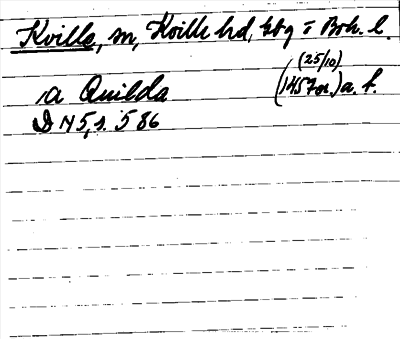 Kville, sn, Kville hd, Gbg o Boh. l.
(25/10)
a Quilda (1457 or.) a. f.
DN 5, s. 586